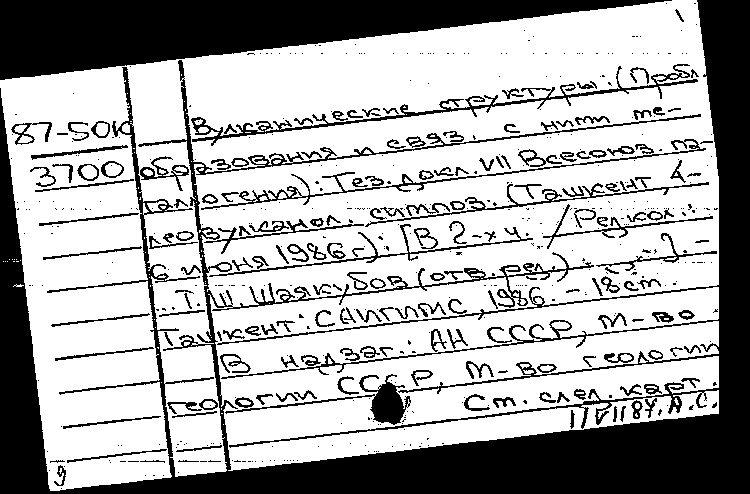 87-50К
3700
Вулканические структуры: (Пробл.
образования и связ. с ними ме-
таллогения): Тез. докл. VII Всесоюз. па-
леовулканол. симпоз. (Ташкент, 4-
6 июня 1986 г.): [В 2-х ч. / Редкол.:
...Т. Ш. Шаякубов (отв. ред.)
Ташкент: САИГИМС, 1986. - 18 см.
В надзаг.: АН СССР, М-во
геологии СССР, М-во геологии
См. след. карт.
А. С.
9